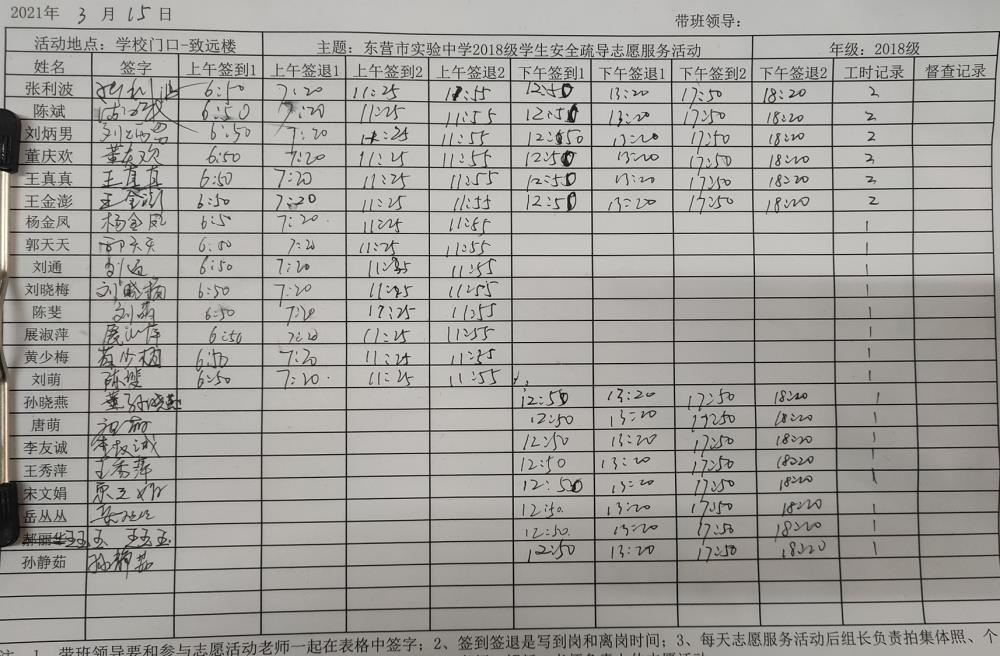 2021年 3 月 15 日
带班领导:
活动地点: 学校门口-致远楼 主题: 东营市实验中学2018级学生安全疏导志愿服务活动 年级: 2018级
姓名 签字 上午签到1 上午签退1 上午签到2 上午签退2 下午签到1 下午签退1 下午签到2 下午签退2 工时记录 督查记录
张利波 6:50 7:20 11:25 11:55 12:50 13:20 17:50 18:20 2
陈斌 6:50 7:20 11:25 11:55 12:50 13:20 17:50 18:20 2
刘炳男 刘炳男 6:50 7:20 11:25 11:55 12:50 13:20 17:50 18:20 2
董庆欢 董庆欢 6:50 7:20 11:25 11:55 12:50 13:20 17:50 18:20 2
王真真 王真真 6:50 7:20 11:25 11:55 12:50 13:20 17:50 18:20 2
王金澎 王金澎 6:50 7:20 11:25 11:55 12:50 13:20 17:50 18:20 2
杨金凤 杨金凤 6:5 7:20 11:25 11:55 1
郭天天 郭天天 6:50 7:20 11:25 11:55 1
刘通 刘通 6:50 7:20 11:25 11:55 1
刘晓梅 刘晓梅 6:50 7:20 11:25 11:55 1
陈斐 刘萌 6:50 7:20 11:25 11:55 1
展淑萍 展淑萍 6:50 7:20 11:25 11:55 1
黄少梅 黄少梅 6:50 7:20 11:25 11:55 1
刘萌 陈斐 6:50 7:20 11:25 11:55 1
孙晓燕 孙晓燕 12:50 13:20 17:50 18:20 1
唐萌 唐萌 12:50 13:20 17:50 18:20 1
李友诚 李友诚 12:50 13:20 17:50 18:20 1
王秀萍 王秀萍 12:50 13:20 17:50 18:20 1
宋文娟 宋文娟 12:50 13:20 17:50 18:20 1
岳丛丛 岳丛丛 12:50 13:20 17:50 18:20 1
郝丽华 王玉玉 王玉玉 12:50 13:20 17:50 18:20 1
孙静茹 孙静茹 12:50 13:20 17:50 18:20 1
1、带班领导要和参与志愿活动老师一起在表格中签字; 2、签到签退是写到岗和离岗时间; 3、每天志愿服务活动后组长负责拍集体照、个